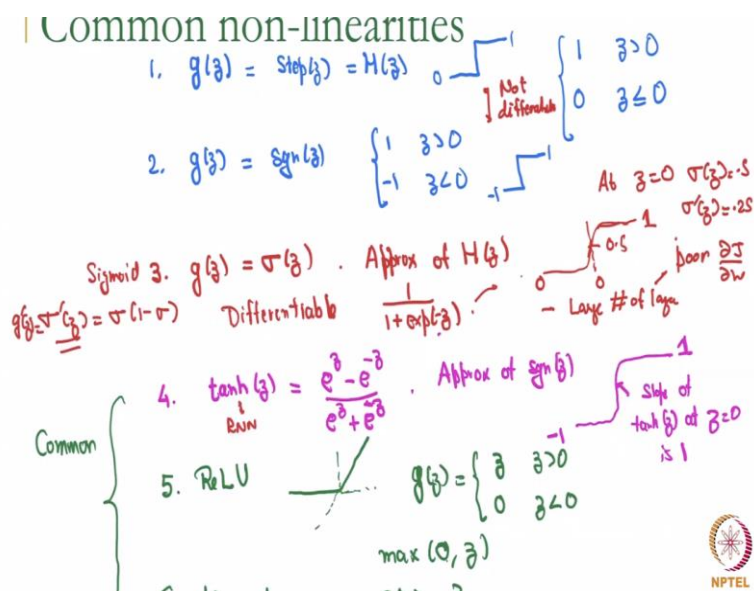 Common non-linearities
1. g(z) = Step(z) = H(z) 0 1 { 1 z>0
Not differentiable 0 z≤0
2. g(z) = sgn(z) { 1 z>0
-1 z<0 -1 1
At z=0 σ(z)=.5
σ'(z)=.25
Sigmoid 3. g(z) = σ(z). Approx of H(z) 0 0.5 0 1 poor ∂J/∂w
g'(z)=σ'(z) = σ(1-σ) Differentiable 1/(1+exp(-z)). - Large # of layer
4. tanh(z) = (e^z - e^-z)/(e^z + e^-z). Approx of sgn(z) -1 1
RNN
slope of tanh(z) at z=0 is 1
Common
5. ReLU g(z) = { z z>0
0 z<0
max(0, z)
NPTEL